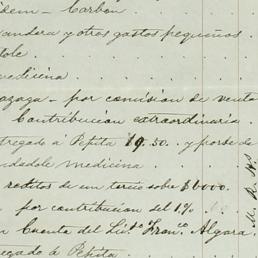 idem - Carbon
andera y otros gastos pequeños
dole
medicina
azaga - por comision de venta
Contribucion estraordinaria
tregado á Pepita 19.50 . y porte de
andadole medicina
reditos de un tercio sobe $6000.
por contribucion del 1%
n Cuenta del Lic.do Fran.co Algara.
egado á Pepita